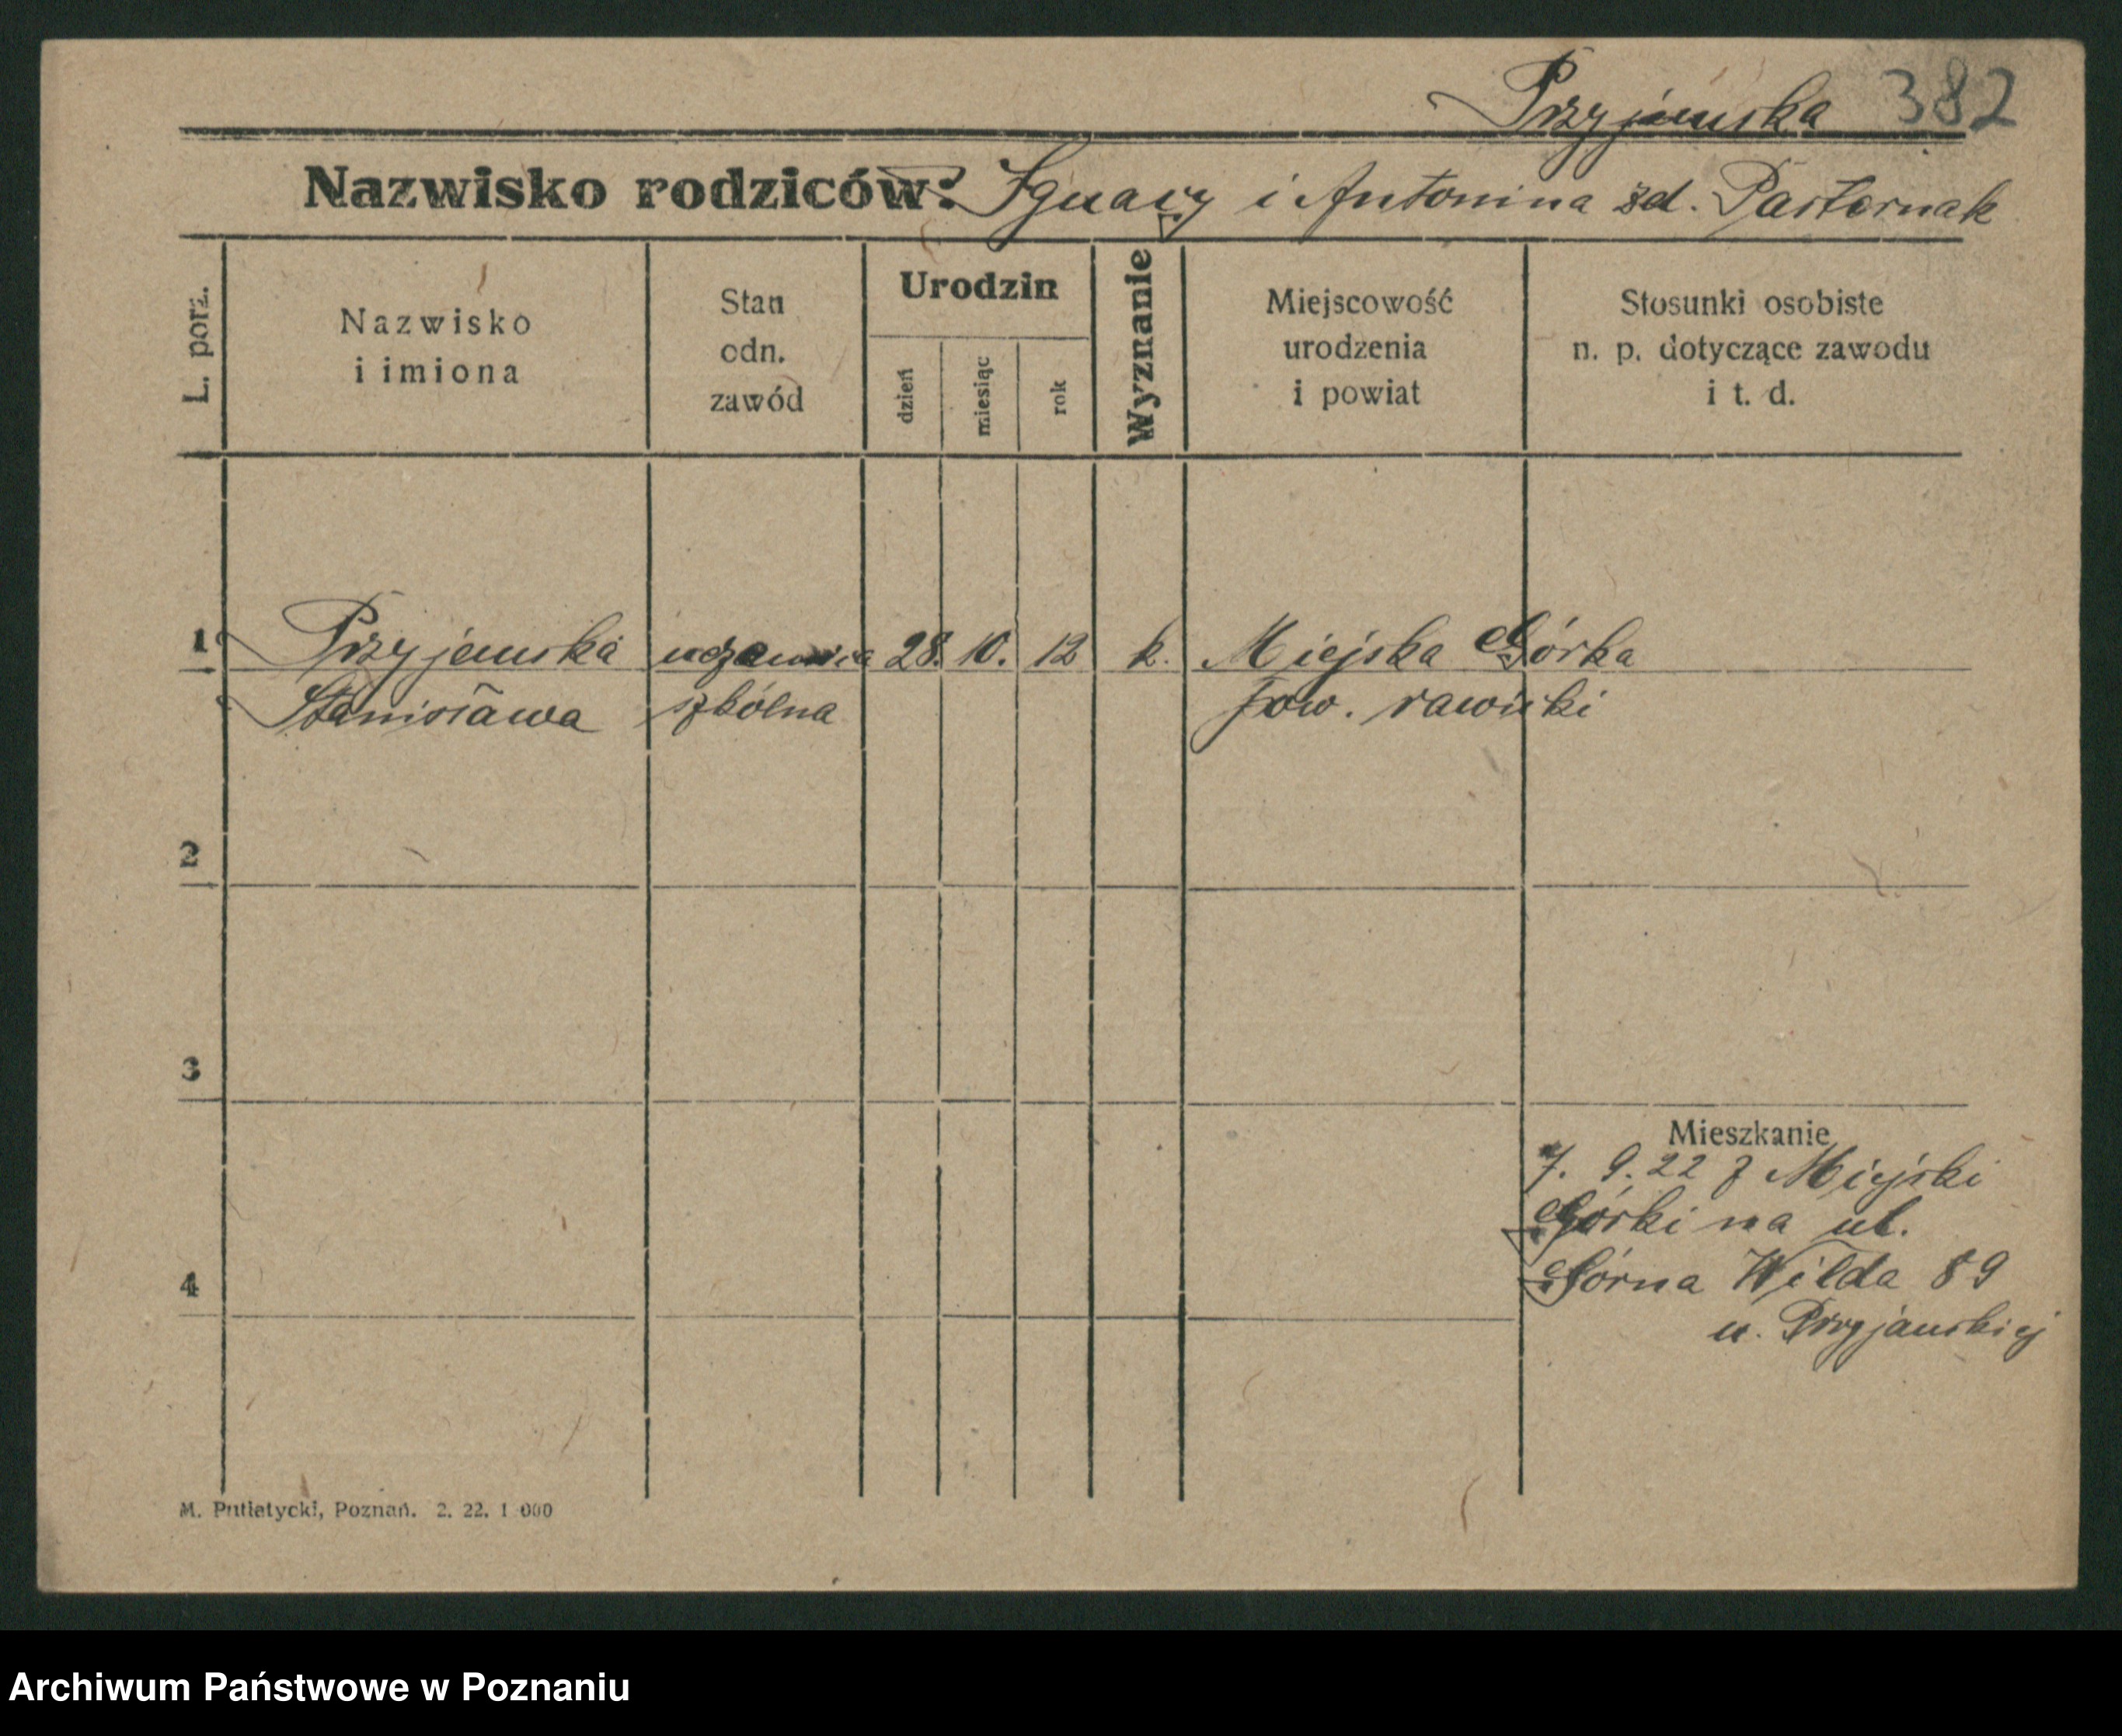 Przyjemska 382
Nazwisko rodziców: Ignacy i Antonina zd. Pasternak
L. porz.
Nazwisko
i imiona
Stan
odn.
zawód
Urodzin
dzień
miesiąc
rok
Wyznanie
Miejscowość
urodzenia
i powiat
Stosunki osobiste
n. p. dotyczące zawodu
i t. d.
1 Przyjemska uczennica 28. 10. 12 k. Miejska Górka
Stanisława szkolna pow. rawicki
2
3
Mieszkanie
7. 9. 22 z Miejski
Górki na ul.
4 Górna Wilda 89
u. Przyjamskiej
M. Putiatycki, Poznań. 2. 22. 1 000
Archiwum Państwowe w Poznaniu